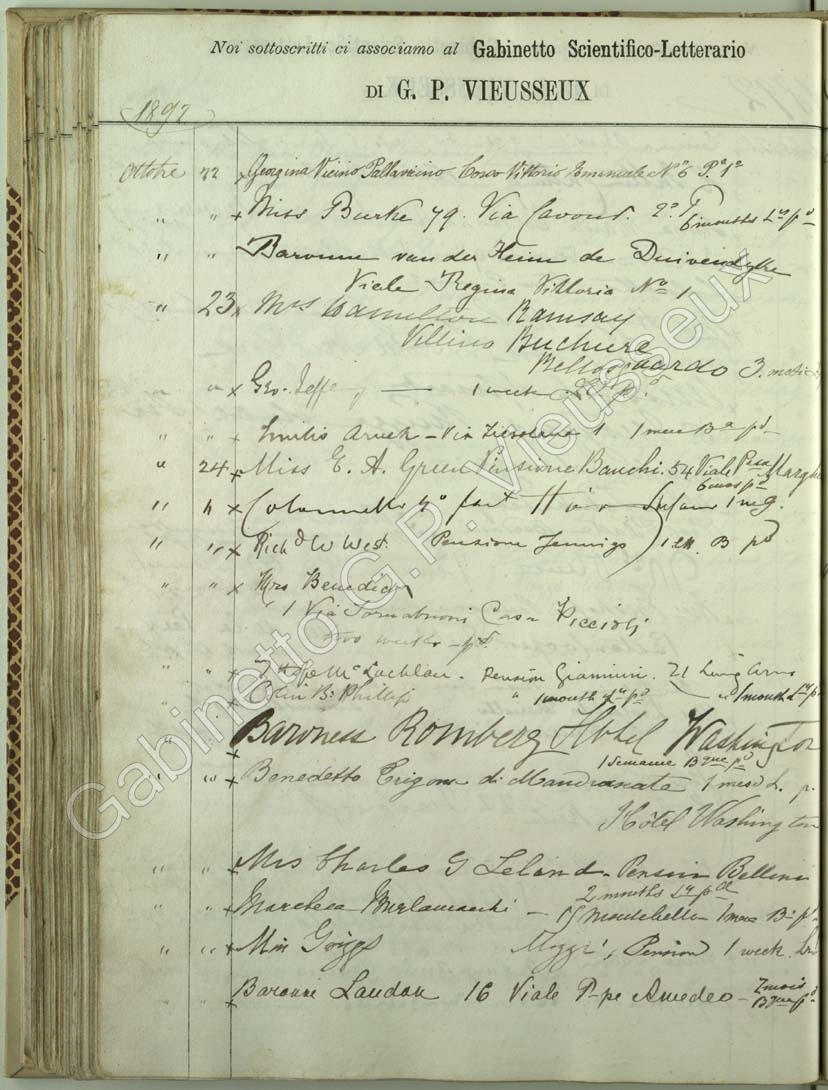 Noi sottoscritti ci associamo al Gabinetto Scientifico-Letterario
DI G. P. VIEUSSEUX
1897
Ottobre 22 x Georgina Vicino Pallavicino Corso Vittorio Emanuele Nº 6 Pº 1º
" " x Miss Burke 79. Via Cavour. 2º P
6 months Lre pd
" " Baronne van der Heim de Duivendyke
Viale Regina Vittoria No 1
" 23 x Mrs Hamilton Ramsay
Villino
Bellosguardo 3.
" " x Geo. 1 week
" " x Emilio — Via Fiesolana 1 1 mese Ba pd
" 24 x Miss E. A. Green Pensione Banchi. 54 Viale Pssa Marghe
6 mos pd
" " x
" " x Richd W West. Pensione Jennings B pd
" " x Mrs Benedict
1 Via Tornabuoni Casa Piccioli
two weeks - pd.
" " x McLachlan. Pension Giannini. 21 Lung Arno
x Colin B. Phillip " 1 month Lre pd " 1 month Lre pd
" " x Baroness Romberg Hotel Washington
1 semaine Bque pd
" " x Benedetto Trigona di Mandrascate 1 mese L. p.
Hôtel Washington
" " x Mrs Charles G Leland - Pension Bellini
2 months Lre pd
" " x Marchesa Burlamacchi - Montebello 1 mese Ba pd
" " x Miss Griggs Pension 1 week
" " x Baronne Landau 16 Viale P-pe Amedeo - mois
Bque pd
Gabinetto G.P. Vieusseux